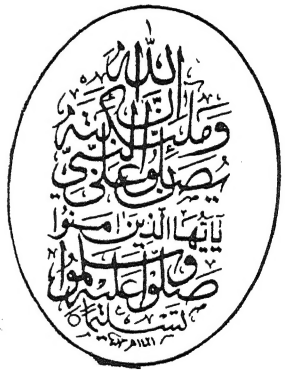 إن الله
وملئكته
يصلون على النبي
يأيها الذين امنوا
صلوا عليه وسلموا
تسليما